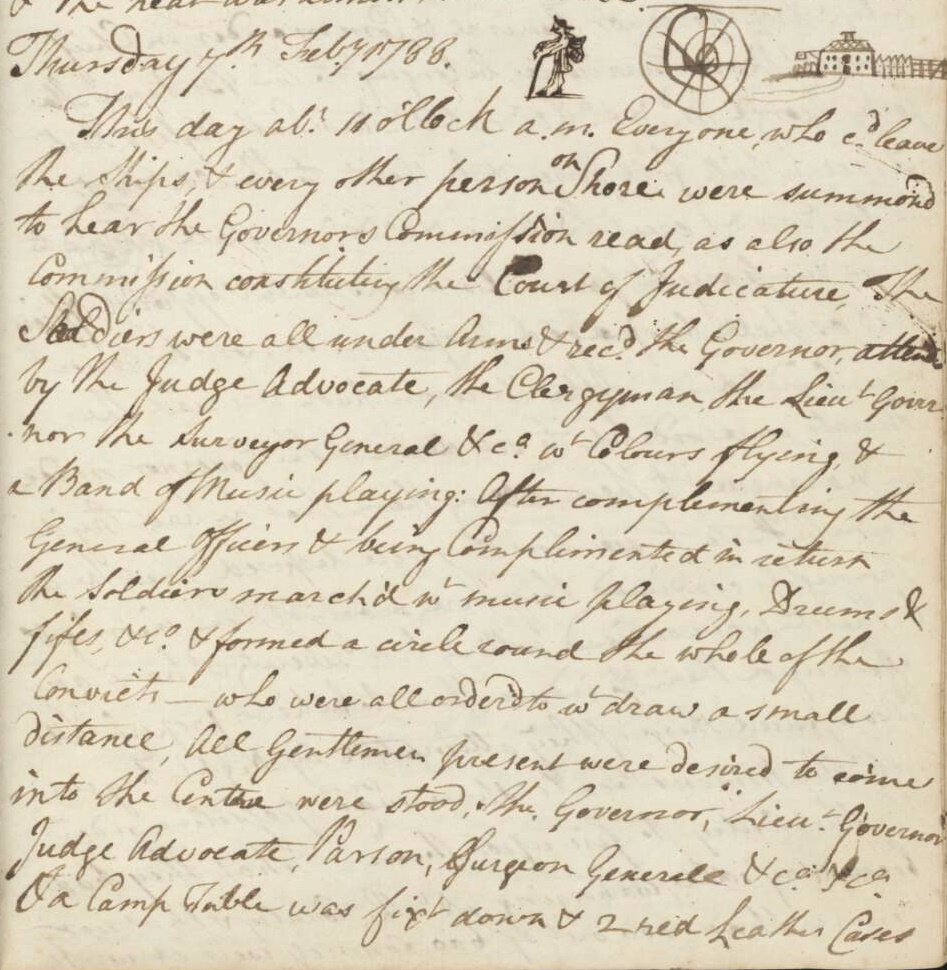 & the heat was
Thursday 7th. Feby. 1788.
This day abt. 11 o'Clock a.m. Everyone, who cd. leave
the Ships, & every other person on Shore were summond
to hear the Governors Commission read, as also the
Commission constituting the Court of Judicature, The
Soldiers were all under Arms & recd. the Governor, attend
by the Judge Advocate, the Clergyman, the Lieut. Gover
nor the Surveyor General &ca. wt. Colours flying, &
a Band of Music playing: After complimenting the
General Officers & being Complimented in return
the Soldiers march'd wt. music playing, Drums &
fifes, &ca. & formed a circle round the whole of the
Convicts — who were all orderd to wt.draw a small
distance, All Gentlemen present were desired to come
into the Centre were stood, the Governor, Lieut. Governor
Judge Advocate, Parson, Surgeon Generele &ca. &ca.
& a Camp Table was fixt down & 2 red Leather Cases